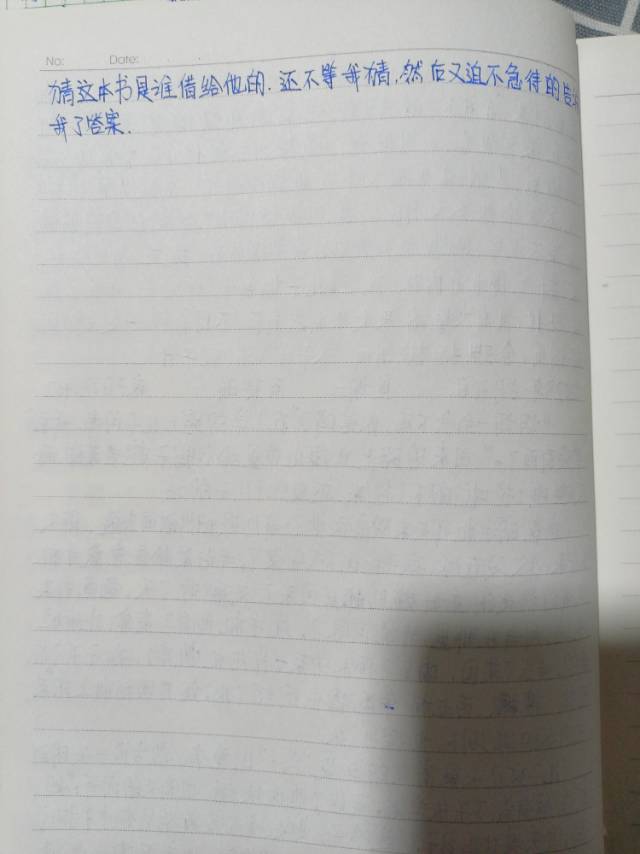 No: Date:
猜这本书是谁借给他的.还不等我猜,然后又迫不急待的告
我了答案.